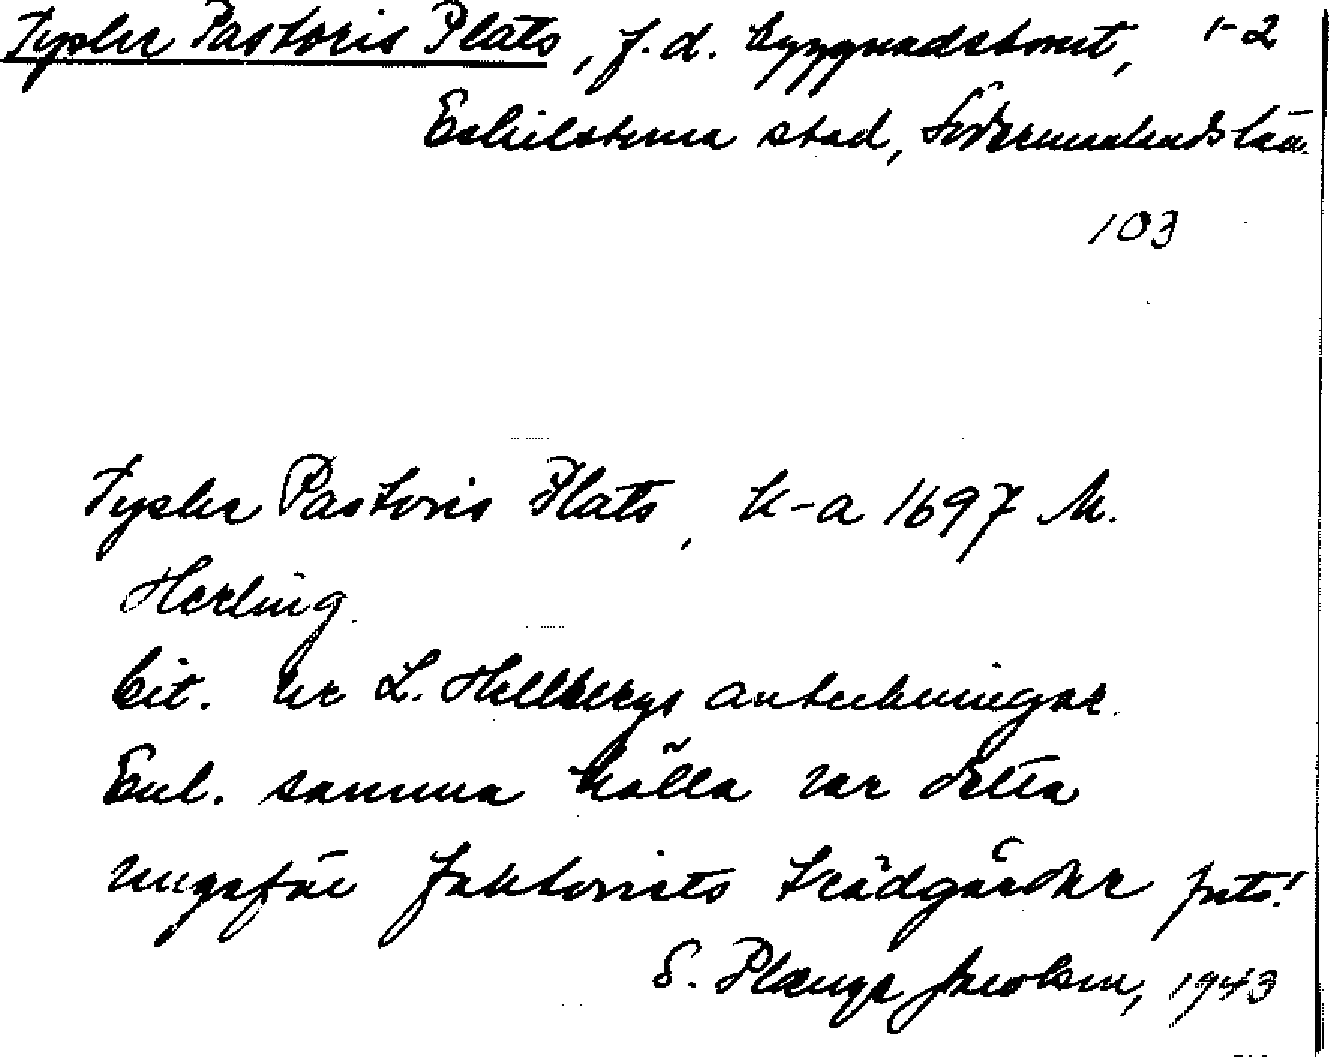 Tysker Pastoris Plats, f.d. byggnadstomt, 1-2
Eskilstuna stad, Södermanlands län.
103
Tysker Pastoris Plats, k-a 1697 M.
Herling.
Cit. ur L. Hellbergs anteckningar.
Enl. samma källa var detta
ungefär faktoriets trädgårdar
S. Jacobson, 1943